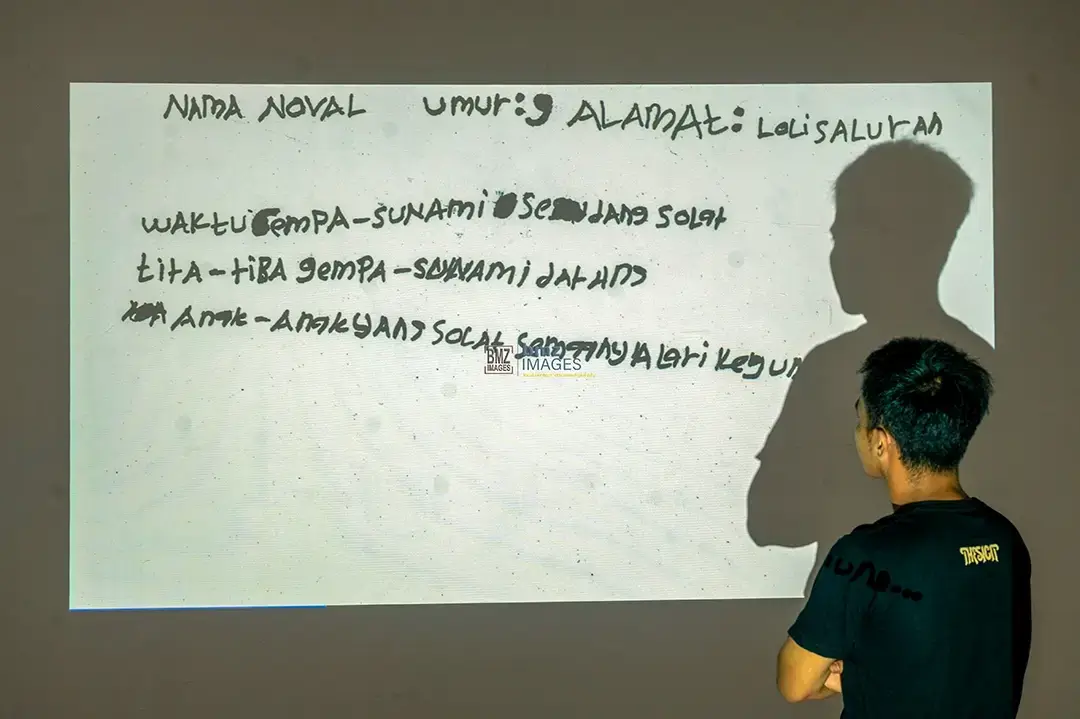 NAMA NOVAL umur:9 ALAMAt: LOLiSALUrAn
WAKtU GemPA-SUNAMi SeDANg SOLAt
tiTA-tiBA gemPA-SUNAMi dAtANg
AnAK-AnAKyANg SOLAt SemAnyA LAri Kegun
ung...
BMZ IMAGES
IMAGES
THESIGIT